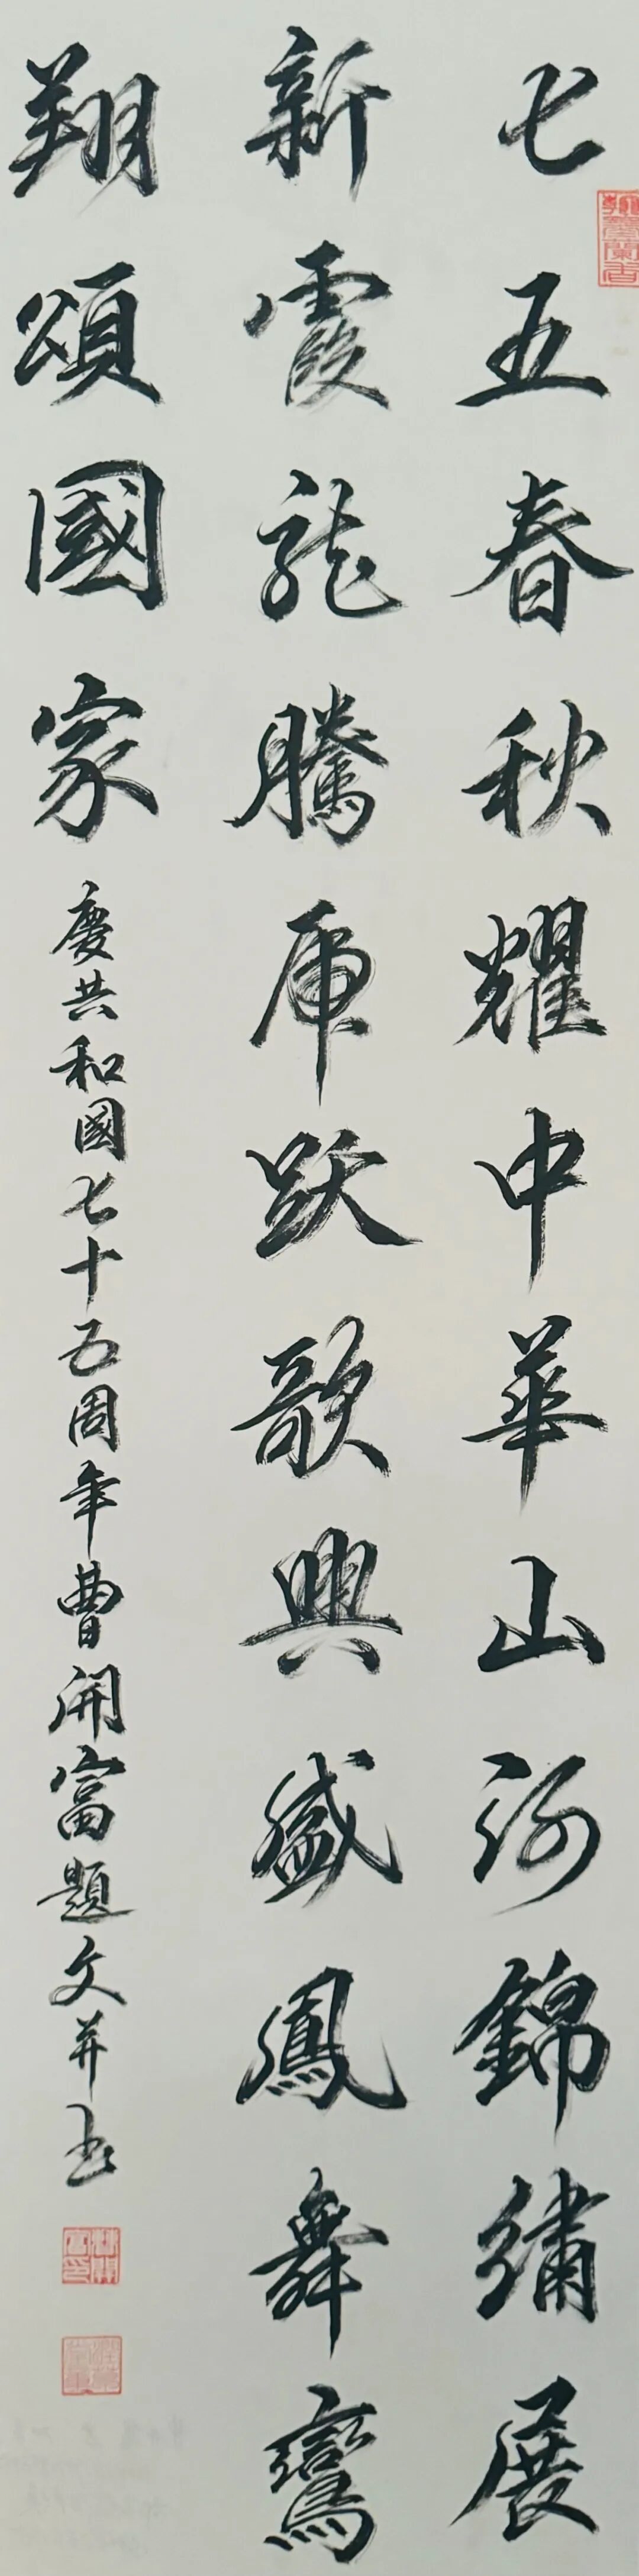 七五春秋耀中華山河錦繡展
新霞龍騰虎跃歌興盛鳳舞鸞
翔頌國家
慶共和國七十五周年曹開富題文并书